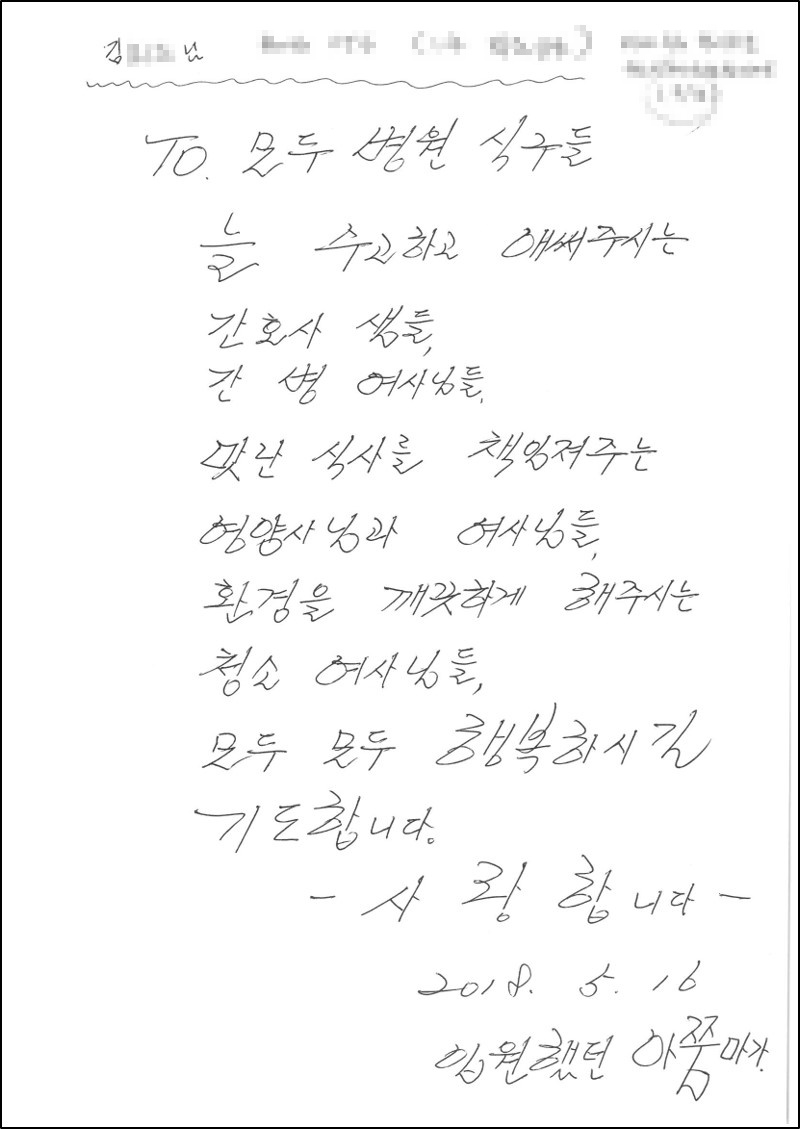 김 님
TO. 모두 병원 식구들
늘 수고하고 애써주시는
간호사 샘들,
간 병 여사님들,
맛난 식사를 책임져주는
영양사님과 여사님들,
환경을 깨끗하게 해주시는
청소 여사님들,
모두 모두 행복하시길
기도합니다.
- 사 랑 합 니다 -
2018. 5. 16
입원했던 아쭘마가.